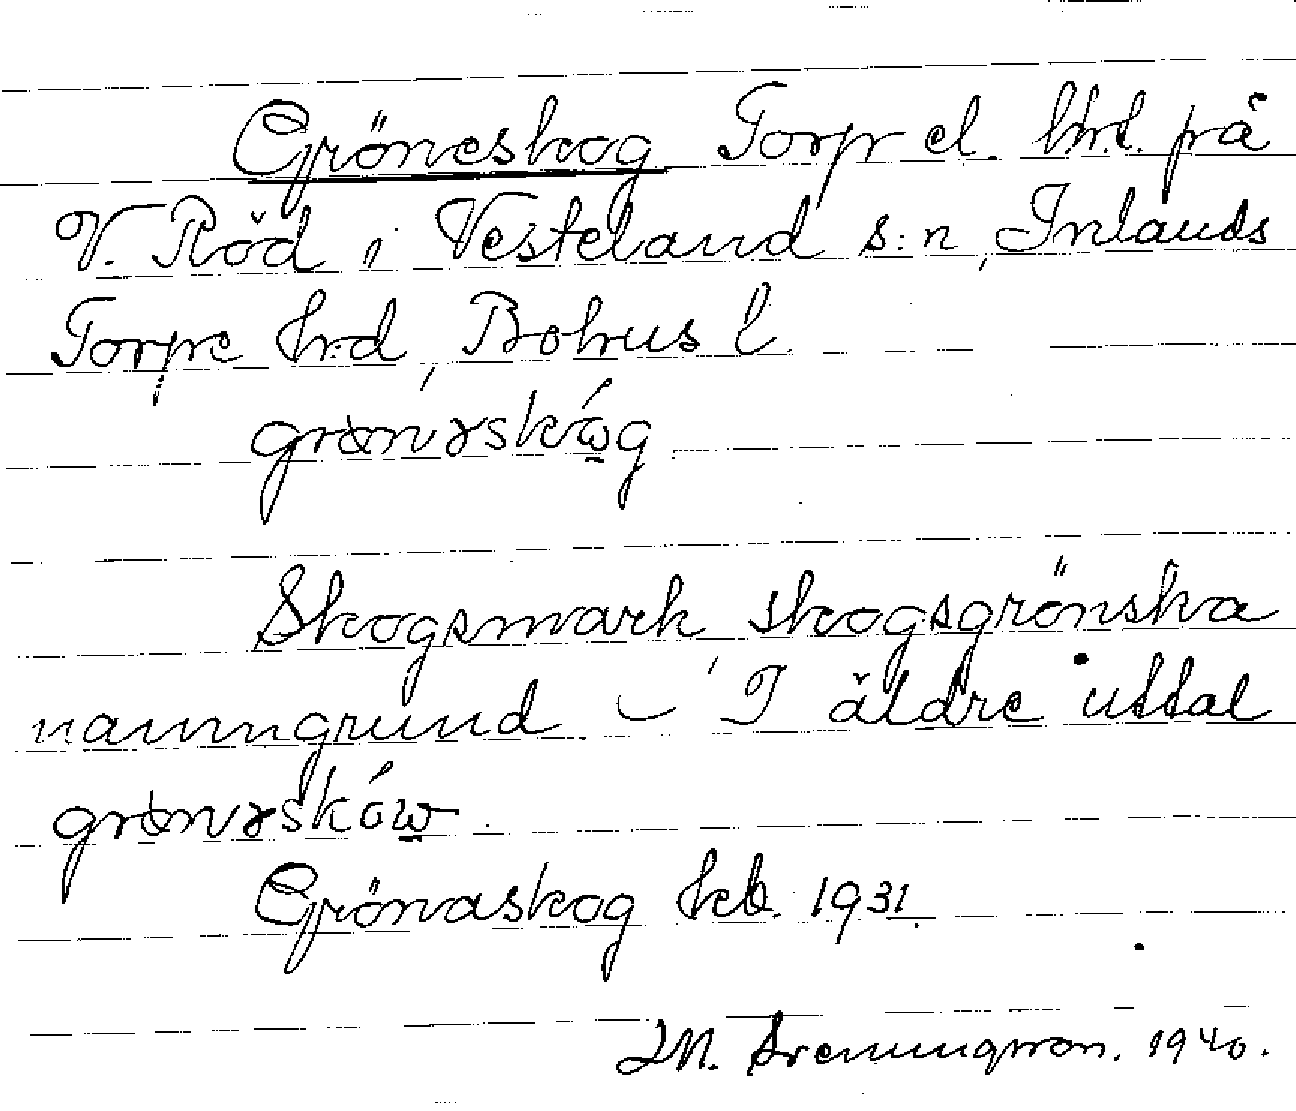 Gröneskog Torp el. hrd. på
V. Röd i Vesteland s:n, Inlands
Torpe hrd, Bohus l.
grønɤskóg
Skogsmark, skogsgrönska
namngrund – I äldre uttal
grønɤsków.
Grönaskog kb. 1931.
1940.